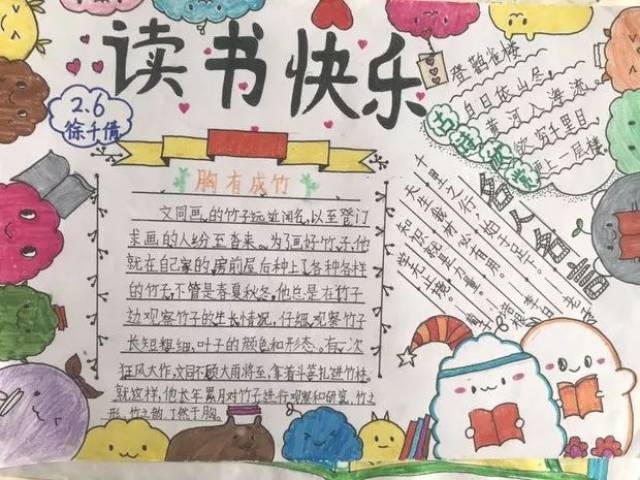 读书快乐
2.6
徐千倩
登鹳雀楼
白日依山尽,
黄河入海流。
欲穷千里目,
更上一层楼
古诗欣赏
胸有成竹
文同画的竹子远近闻名,以至登门
求画的人纷至沓来。为了画好竹子,他
就在自家的房前屋后种上了各种各样
的竹子,不管是春夏秋冬,他总是在竹子
边观察竹子的生长情况,仔细观察竹子
长短粗细、叶子的颜色和形态。有一次
狂风大作,文同不顾大雨将至,拿着斗笠扎进竹林
就这样,他长年累月对竹子进行观察和研究,竹之
形、竹之韵了然于胸。
名人名言
千里之行,始于足下。 老子
天生我材必有用。 李白
知识就是力量。 培根
学无止境。 荀子